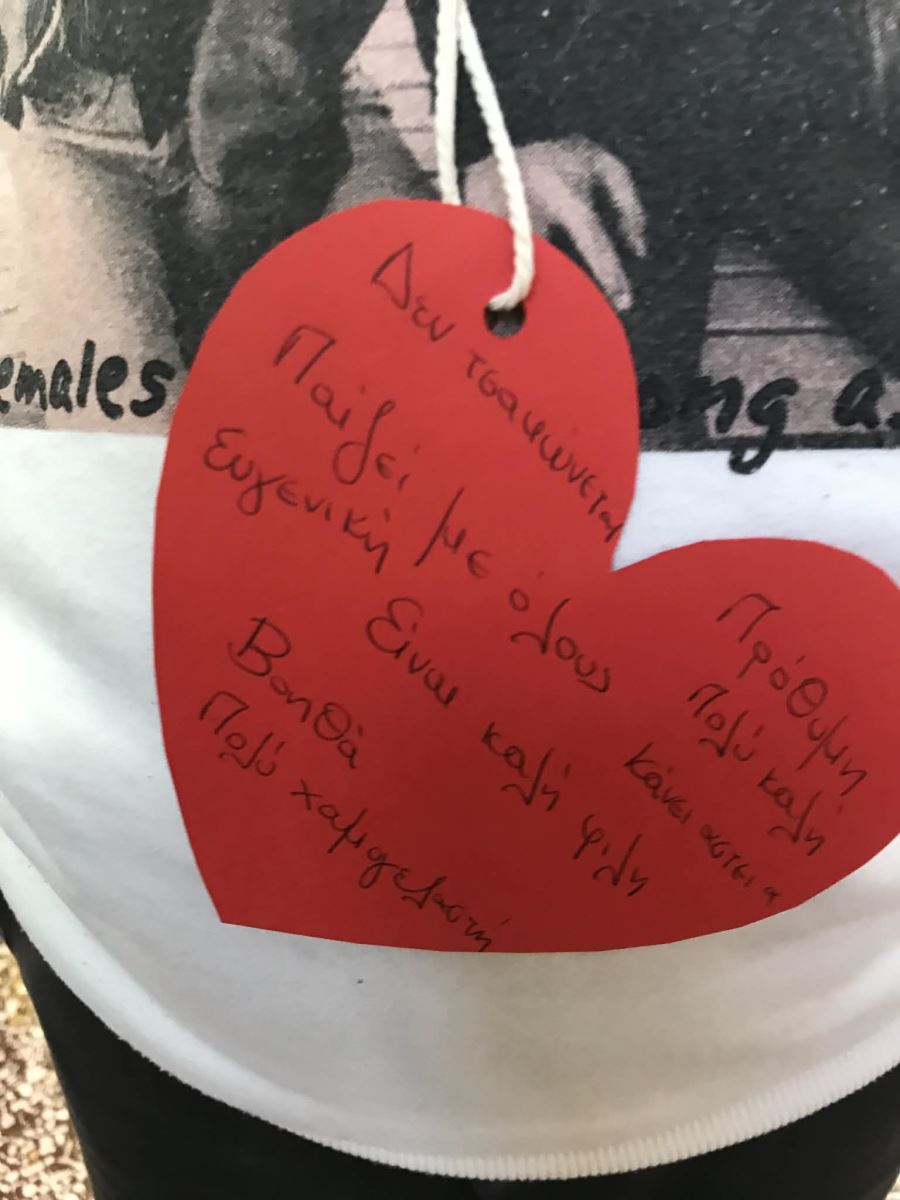 emales
ong a.
Δεν τσακώνεται
Παίζει με όλους
Ευγενική
Είναι καλή φίλη
Βοηθά
Πολύ χαμογελαστή
Πρόθυμη
Πολύ καλή
κάνει αστεια